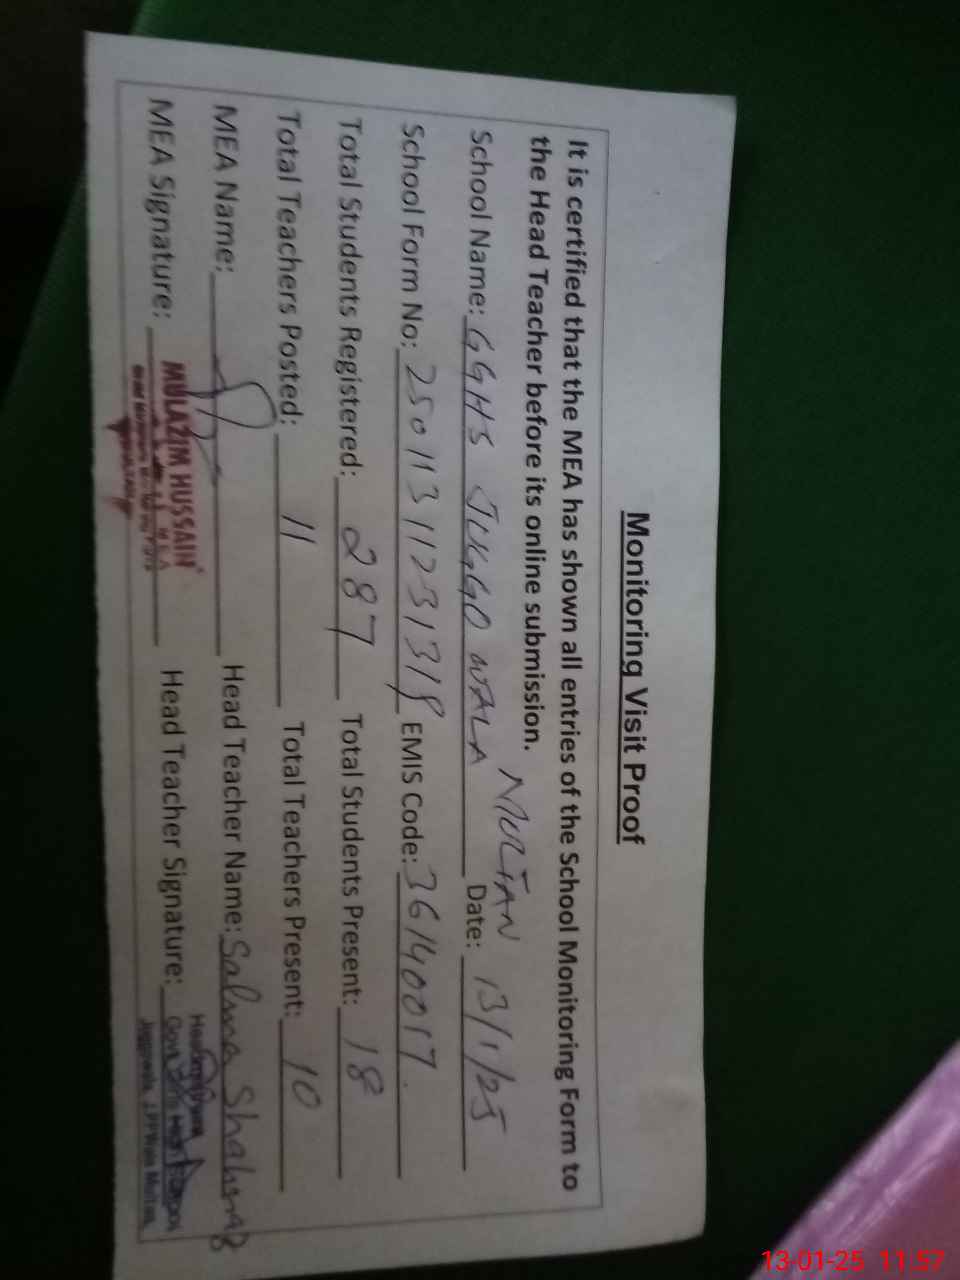 Monitoring Visit Proof
It is certified that the MEA has shown all entries of the School Monitoring Form to
the Head Teacher before its online submission.
MULTAN
School Name: GGHS JUGGO WALA Date: 13/1/25
School Form No: EMIS Code: 36140017.
Total Students Registered: 287 Total Students Present: 18
Total Teachers Posted: 11 Total Teachers Present: 10
MEA Name: Head Teacher Name: Salma Shaheen
MEA Signature: MULAZIM HUSSAIN Head Teacher Signature:
M.E.A
Headmistress
Govt. Girls High School
Juggowala, JPPWala Multan
13-01-25 11:57